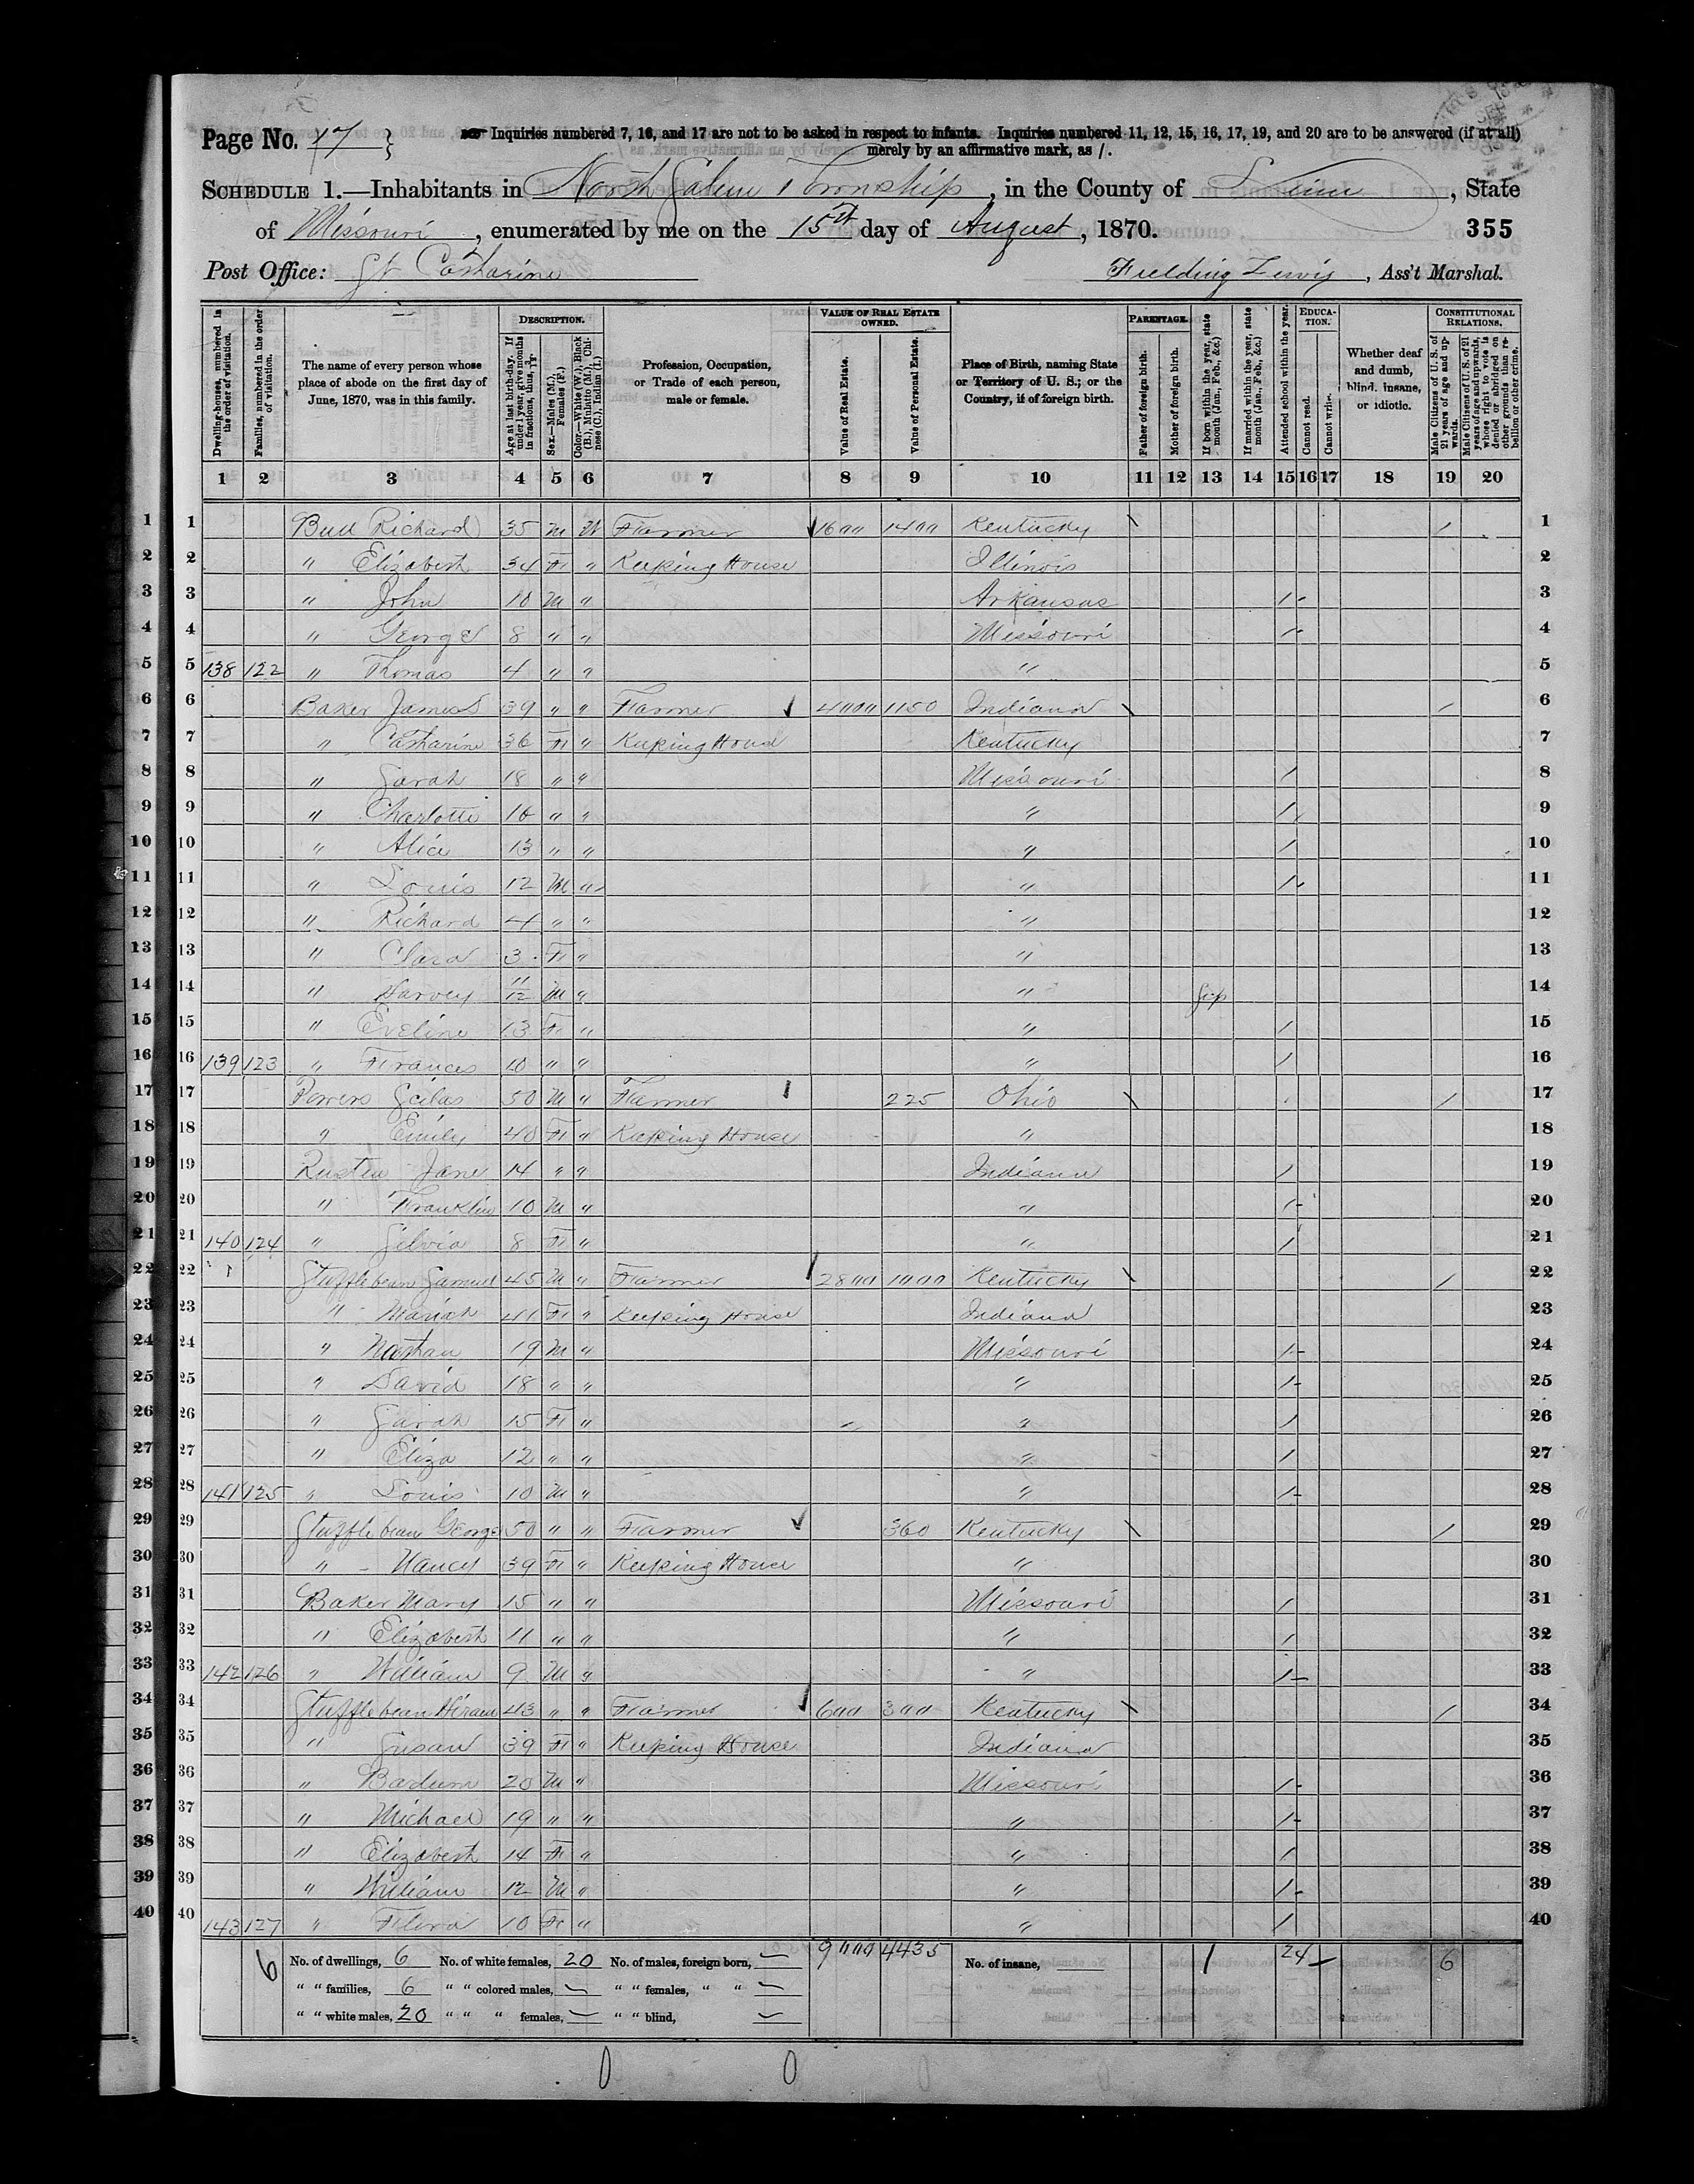 Page No. 17 }
Inquiries numbered 7, 16, and 17 are not to be asked in respect to infants. Inquiries numbered 11, 12, 15, 16, 17, 19, and 20 are to be answered (if at all)
merely by an affirmative mark, as /.
SCHEDULE 1.—Inhabitants in North Salem Township, in the County of Linn, State
of Missouri, enumerated by me on the 15th day of August, 1870. 355
Post Office: St Catharine Fielding Lewis, Ass't Marshal.
Dwelling-houses, numbered in the order of visitation.
Families, numbered in the order of visitation.
The name of every person whose place of abode on the first day of June, 1870, was in this family.
DESCRIPTION.
Age at last birth-day. If under 1 year, give months in fractions, thus, 3/12.
Sex.—Males (M.), Females (F.)
Color.—White (W.), Black (B.), Mulatto (M.), Chinese (C.), Indian (I.)
Profession, Occupation, or Trade of each person, male or female.
VALUE OF REAL ESTATE OWNED.
Value of Real Estate.
Value of Personal Estate.
Place of Birth, naming State or Territory of U. S.; or the Country, if of foreign birth.
PARENTAGE.
Father of foreign birth.
Mother of foreign birth.
If born within the year, state month (Jan., Feb., &c.)
If married within the year, state month (Jan., Feb., &c.)
Attended school within the year.
EDUCATION.
Cannot read.
Cannot write.
Whether deaf and dumb, blind, insane, or idiotic.
CONSTITUTIONAL RELATIONS.
Male Citizens of U. S. of 21 years of age and upwards.
Male Citizens of U. S. of 21 years of age and upwards, whose right to vote is denied or abridged on other grounds than rebellion or other crime.
1 2 3 4 5 6 7 8 9 10 11 12 13 14 15 16 17 18 19 20
1 1 Richard 35 M W Farmer 1600 1400 Kentucky \ / 1
2 2 " Elizabeth 34 F " Keeping House Illinois 2
3 3 " John 10 M " Arkansas / 3
4 4 " George 8 " " Missouri / 4
5 5 138 122 " Thomas 4 " " " 5
6 6 Baker James 39 " " Farmer 4000 1150 Indiana \ / 6
7 7 " Catharine 36 F " Keeping House Kentucky 7
8 8 " Sarah 18 " " Missouri / 8
9 9 " Charlotte 16 " " " / 9
10 10 " Alice 13 " " " / 10
11 11 " Louis 12 M " " / 11
12 12 " Richard 4 " " " 12
13 13 " Clara 3 F " " 13
14 14 " Harvey 11/12 M " " Sep 14
15 15 " Eveline 13 F " " / 15
16 16 139 123 " Frances 10 " " " / 16
17 17 Powers Scilas 50 M " Farmer 225 Ohio \ / 17
18 18 " Emily 40 F " Keeping House " 18
19 19 Jane 14 " " Indiana / 19
20 20 " Franklin 10 M " " / 20
21 21 140 124 " Silvia 8 F " " / 21
22 22 Stufflebean Samuel 45 M " Farmer 2800 1000 Kentucky \ / 22
23 23 " Mariah 41 F " Keeping House Indiana 23
24 24 " Nathan 19 M " Missouri / 24
25 25 " David 18 " " " / 25
26 26 " Sarah 15 F " " / 26
27 27 " Eliza 12 " " " / 27
28 28 141 125 " Louis 10 M " " / 28
29 29 Stufflebean George 50 " " Farmer 360 Kentucky \ / 29
30 30 " Nancy 39 F " Keeping House " 30
31 31 Baker Mary 15 " " Missouri / 31
32 32 " Elizabeth 11 " " " / 32
33 33 142 126 " William 9 M " " / 33
34 34 Stufflebean Hiram 43 " " Farmer 600 300 Kentucky \ / 34
35 35 " Susan 39 F " Keeping House Indiana 35
36 36 " 20 M " Missouri / 36
37 37 " Michael 19 " " " / 37
38 38 " Elizabeth 14 F " " / 38
39 39 " William 12 M " " / 39
40 40 143 127 " 10 F " " / 40
6 No. of dwellings, 6 No. of white females, 20 No. of males, foreign born, — 9000 4435 No. of insane, 1 24 6
" " families, 6 " " colored males, — " " females, " " —
" " white males, 20 " " " females, — " " blind, —